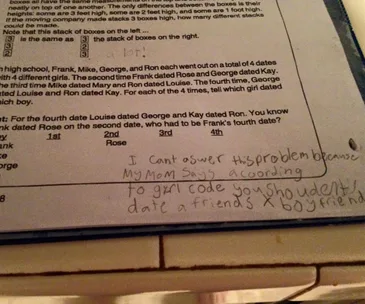 boxes all have the same
neatly on top of one another. The only differences between the boxes is their
heights: some are 3 feet high, some are 2 feet high, and some are 1 foot high.
If the moving company made stacks 3 boxes high, how many different stacks
could be made.
Note that this stack of boxes on the left ...
3 is the same as 3 the stack of boxes on the right.
n high school, Frank, Mike, George, and Ron each went out on a total of 4 dates
with 4 different girls. The second time Frank dated Rose and George dated Kay.
he third time Mike dated Mary and Ron dated Louise. The fourth time, George
ted Louise and Ron dated Kay. For each of the 4 times, tell which girl dated
hich boy.
nt: For the fourth date Louise dated George and Kay dated Ron. You know
nk dated Rose on the second date, who had to be Frank's fourth date?
ey 1st 2nd 3rd 4th
ank Rose
ke
orge
I cant aswer this problem because
my mom says acoording
to girl code you shoudelt
date a friends X boyfriend
8